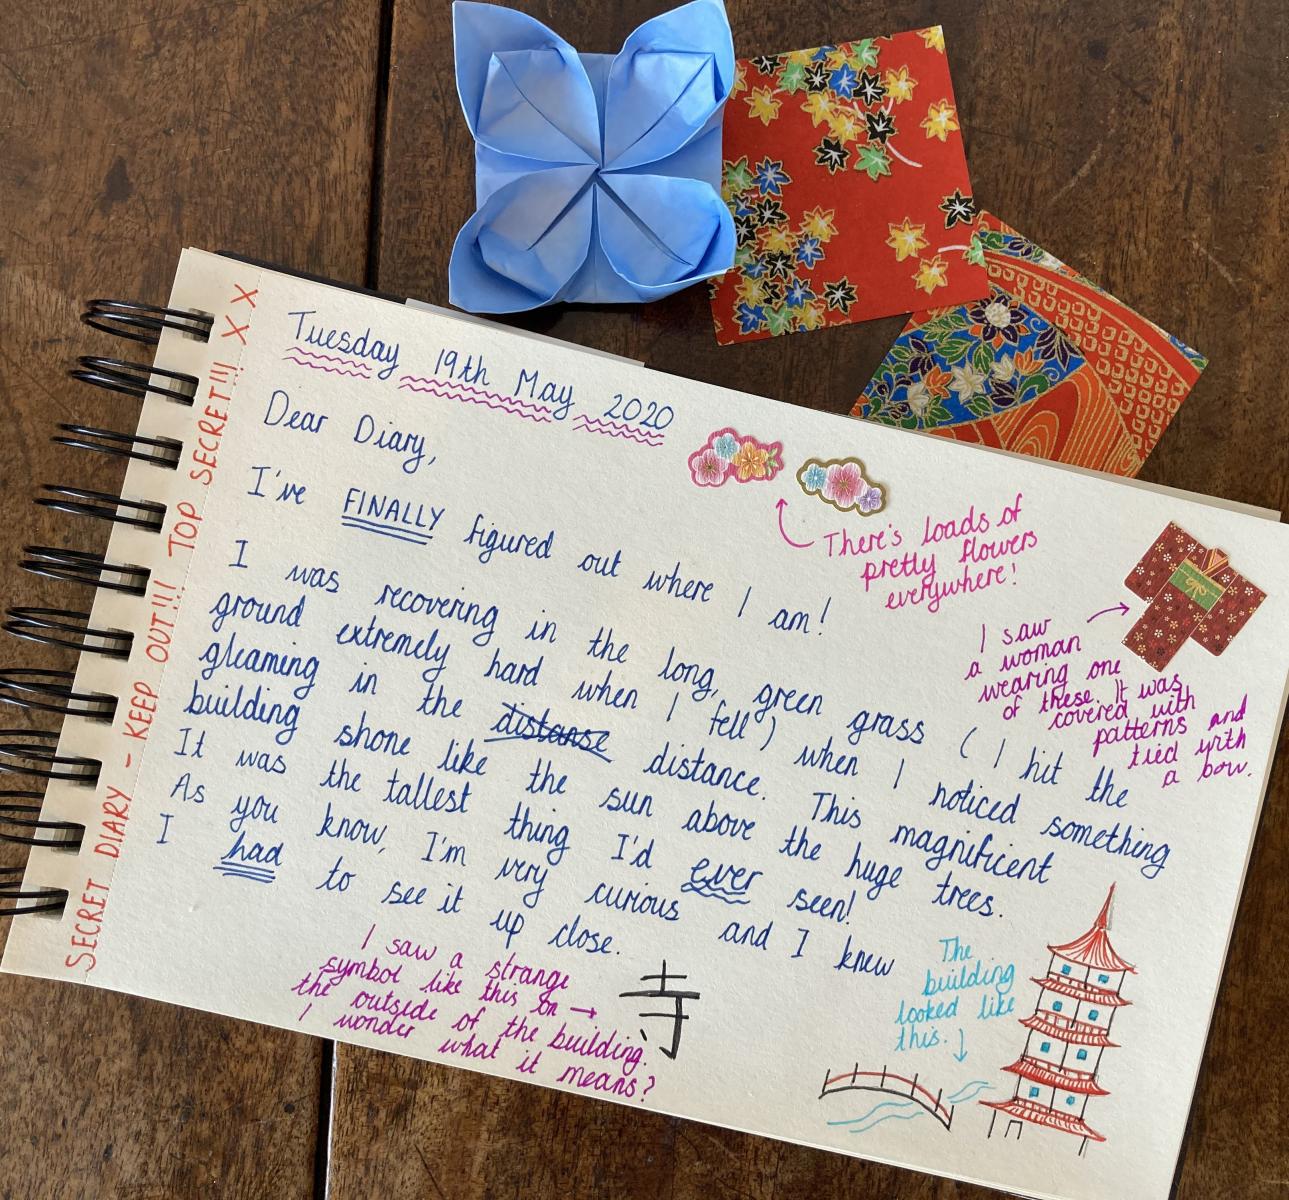 SECRET DIARY - KEEP OUT!!! TOP SECRET!!! X X
Tuesday 19th May 2020
Dear Diary,
I've FINALLY figured out where I am!
There's loads of
pretty flowers
everywhere!
I saw
a woman
wearing one
of these. It was
covered with
patterns and
tied with
a bow.
I was recovering in the long, green grass (I hit the
ground extremely hard when I fell) when I noticed something
gleaming in the distanse distance. This magnificent
building shone like the sun above the huge trees.
It was the tallest thing I'd ever seen!
As you know, I'm very curious and I knew
I had to see it up close.
I saw a strange
symbol like this on →
the outside of the building.
I wonder what it means?
寺
The
building
looked like
this. ↓